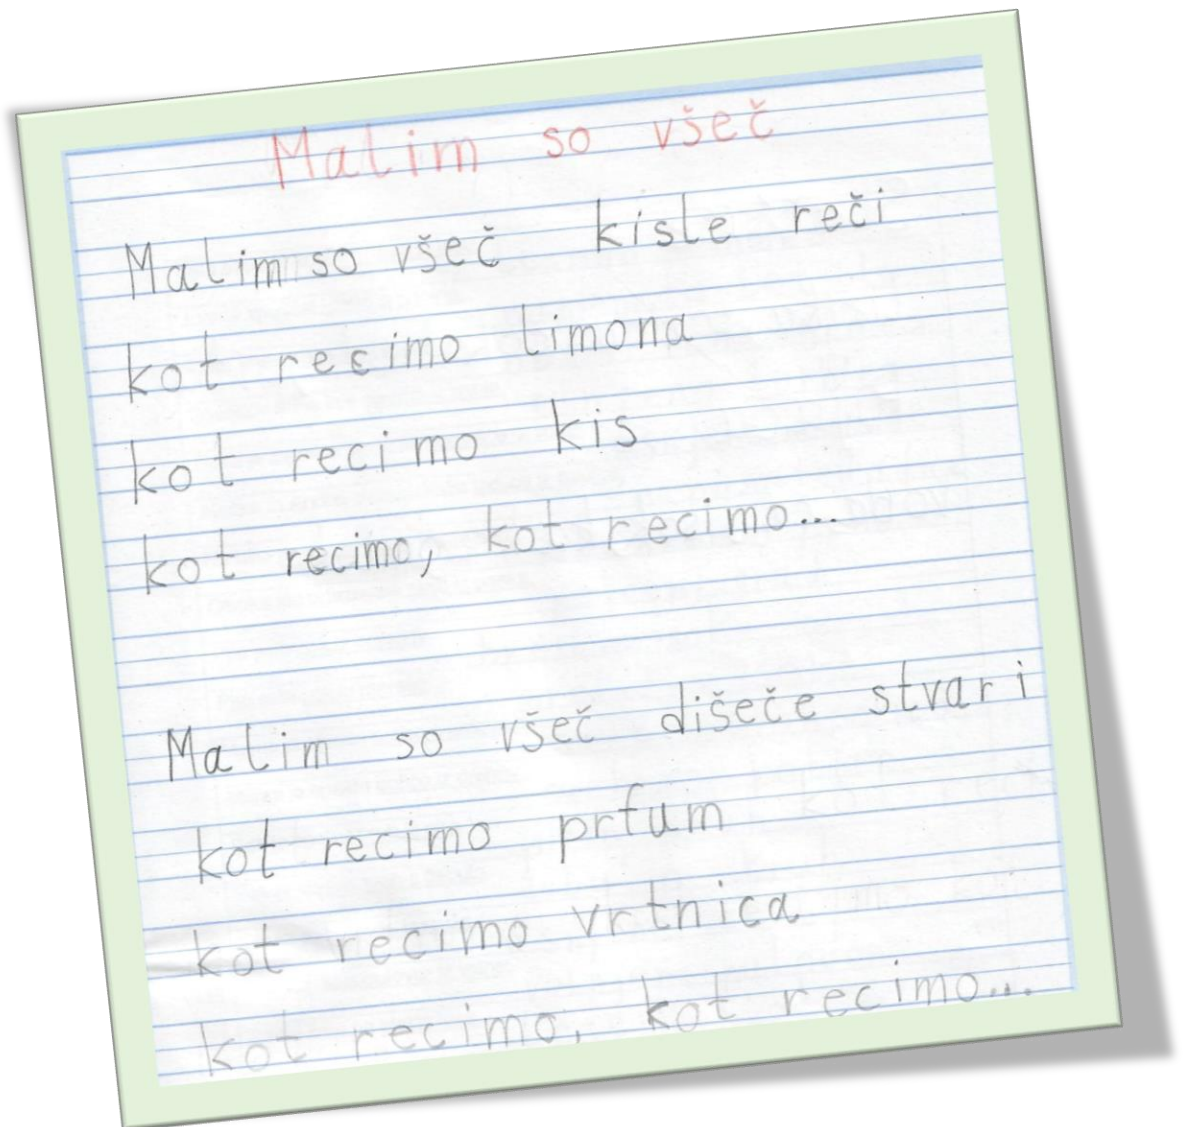 Malim so všeč
Malim so všeč kisle reči
kot recimo limona
kot recimo kis
kot recimo, kot recimo...
Malim so všeč dišeče stvari
kot recimo prfum
kot recimo vrtnica
kot recimo, kot recimo...